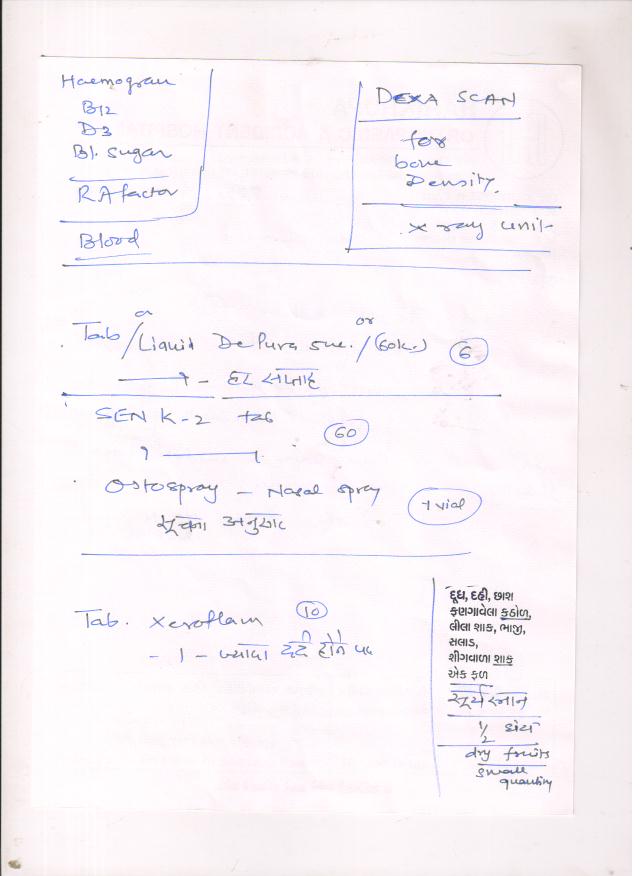 Haemogram
B12
D3
Bl. Sugar
RA factor
Blood
DEXA SCAN
for
bone
Density.
X ray unit
or
or
Tab / Liquid DePura 5ue. / (60k.) 6
1 - हर सप्ताह
SEN K-2 tab 60
1 1
Ostospray - Nasal spray 1 vial
सूचना अनुसार
Tab. Xeroflam 10
- 1 - ज्यादा दर्द होने पर
દૂધ, દહીં, છાશ
ફણગાવેલા કઠોળ,
લીલા શાક, ભાજી,
સલાડ,
શીગવાળા શાક
એક ફળ
सूर्य स्नान
1/2
dry fruits
small
quantity